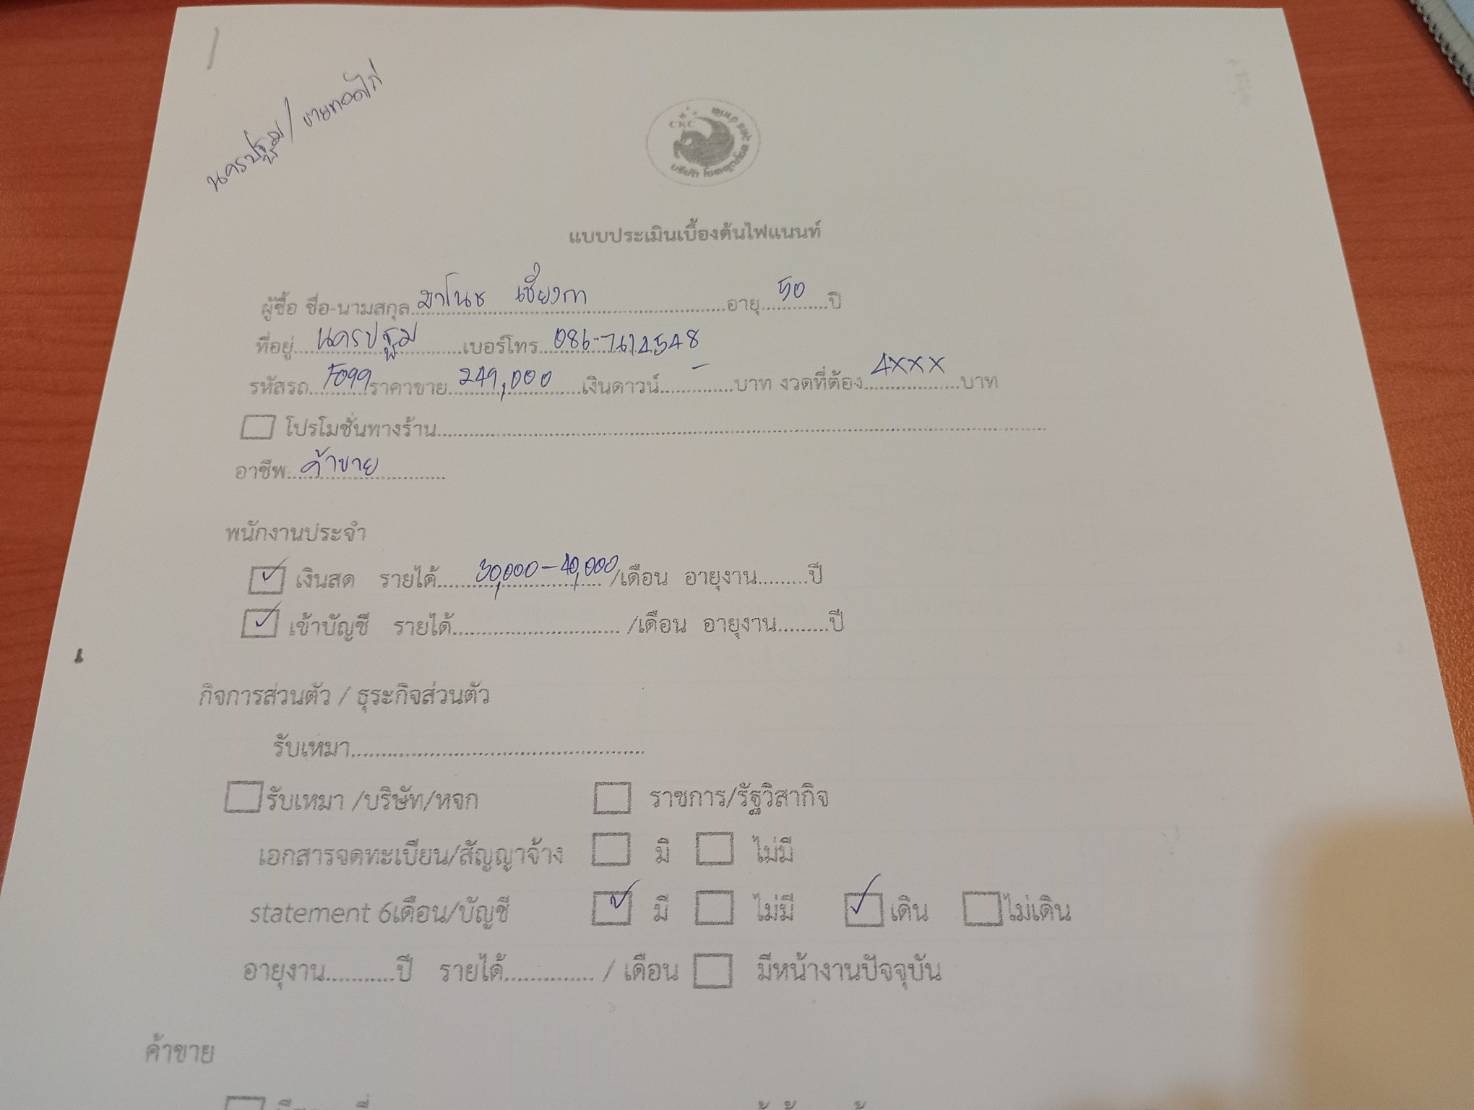 นครปฐม / ขายทอดไก่
CNC
แบบประเมินเบื้องต้นไฟแนนท์
ผู้ซื้อ ชื่อ-นามสกุล มาโนช เชี่ยงกา อายุ 50 ปี
ที่อยู่ นครปฐม เบอร์โทร
รหัสรถ 7099 ราคาขาย 249,000 เงินดาวน์ - บาท งวดที่ต้อง 4xxx บาท
โปรโมชั่นทางร้าน
อาชีพ ค้าขาย
พนักงานประจำ
✓ เงินสด รายได้ 30,000-40,000 /เดือน อายุงาน ปี
✓ เข้าบัญชี รายได้ /เดือน อายุงาน ปี
กิจการส่วนตัว / ธุระกิจส่วนตัว
รับเหมา
รับเหมา /บริษัท/หจก ราชการ/รัฐวิสากิจ
เอกสารจดทะเบียน/สัญญาจ้าง มี ไม่มี
statement 6เดือน/บัญชี ✓ มี ไม่มี ✓ เดิน ไม่เดิน
อายุงาน ปี รายได้ / เดือน มีหน้างานปัจจุบัน
ค้าขาย